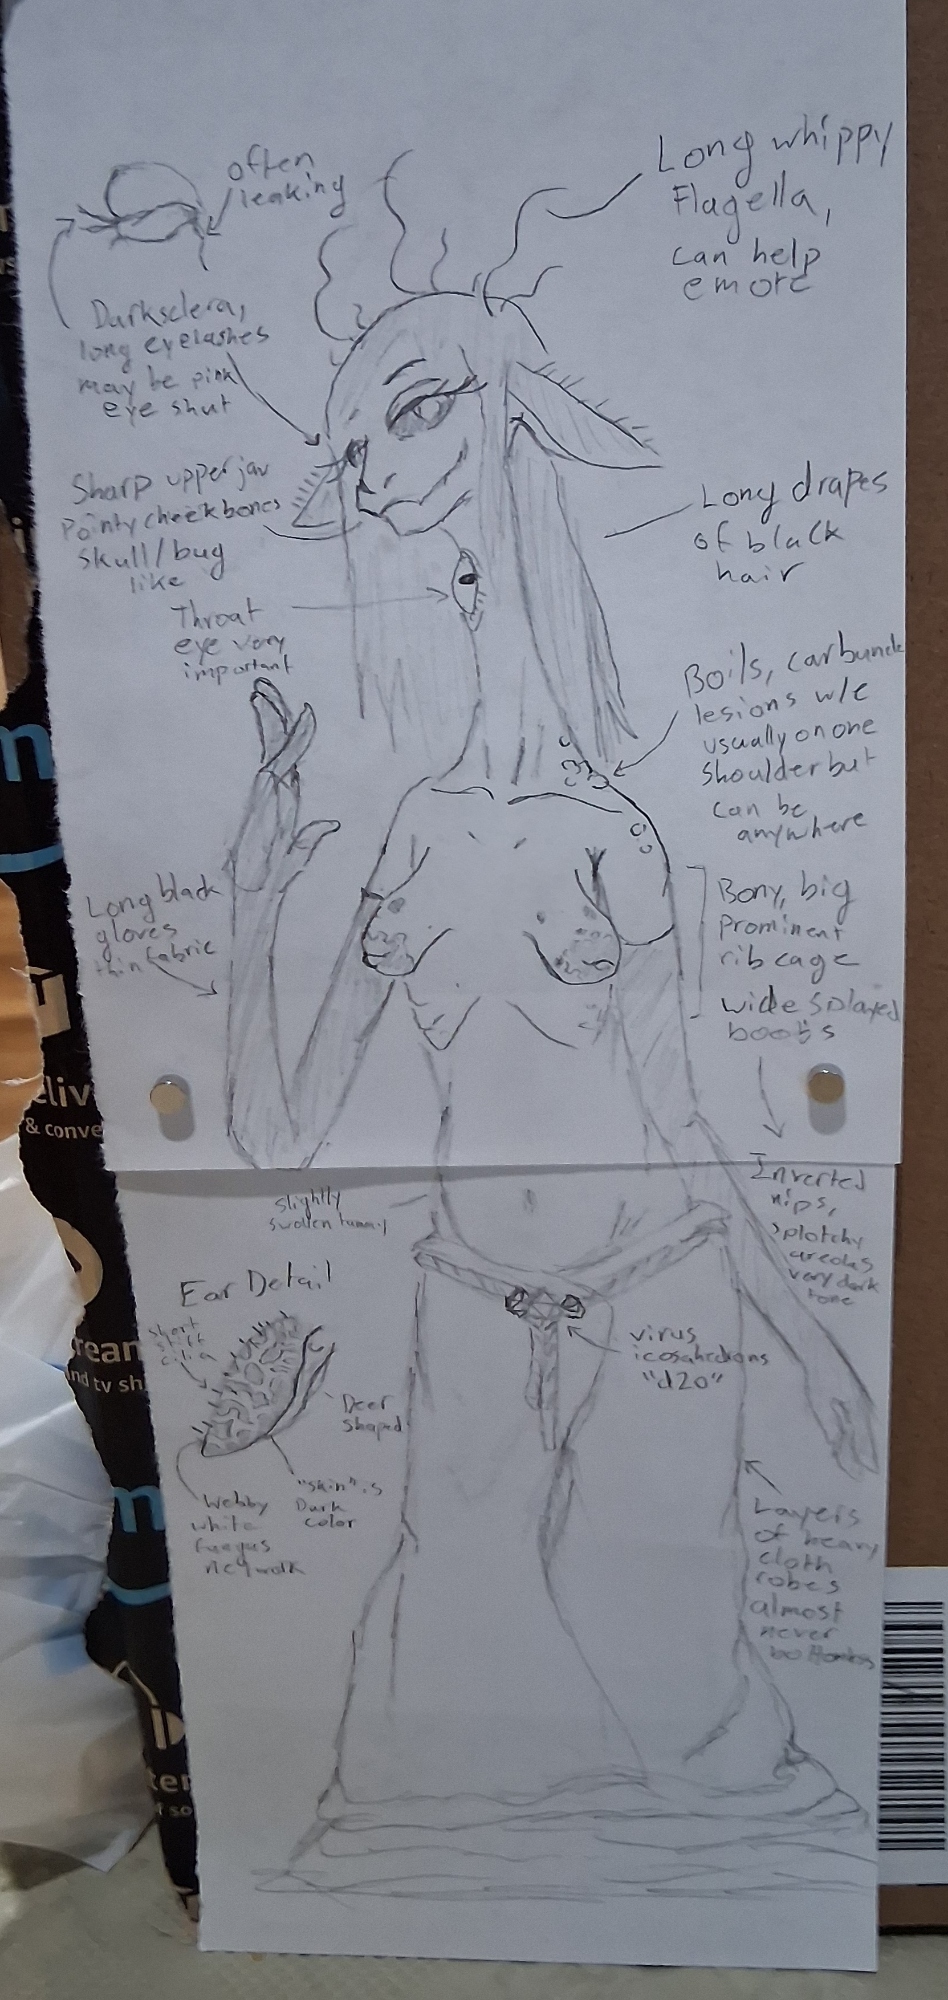 often
leaking
Long whippy
Flagella,
can help
emote
Darksclera,
long eyelashes
may be pink
eye shut
Sharp upper jaw
Pointy cheekbones
skull/bug
like
Long drapes
of black
hair
Throat
eye very
important
Boils, carbuncle
lesions w/e
usually on one
shoulder but
can be
anywhere
Long black
gloves
thin fabric
Bony, big
prominent
rib cage
wide splayed
boobs
eliv
& conve
Inverted
nips,
splotchy
areolas
very dark
tone
slightly
swollen tummy
Ear Detail
short
stiff
cilia
virus
icosahedrons
"d20"
Deer
shaped
"skin" is
Dark
color
Webby
white
fungus
network
Layers
of heavy
cloth
robes
almost
never
bottomless
ream
nd tv sh
m